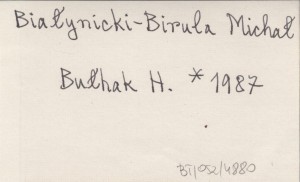 Białynicki-Birula Michał
Bułhak H. * 1987
BT/052/4880